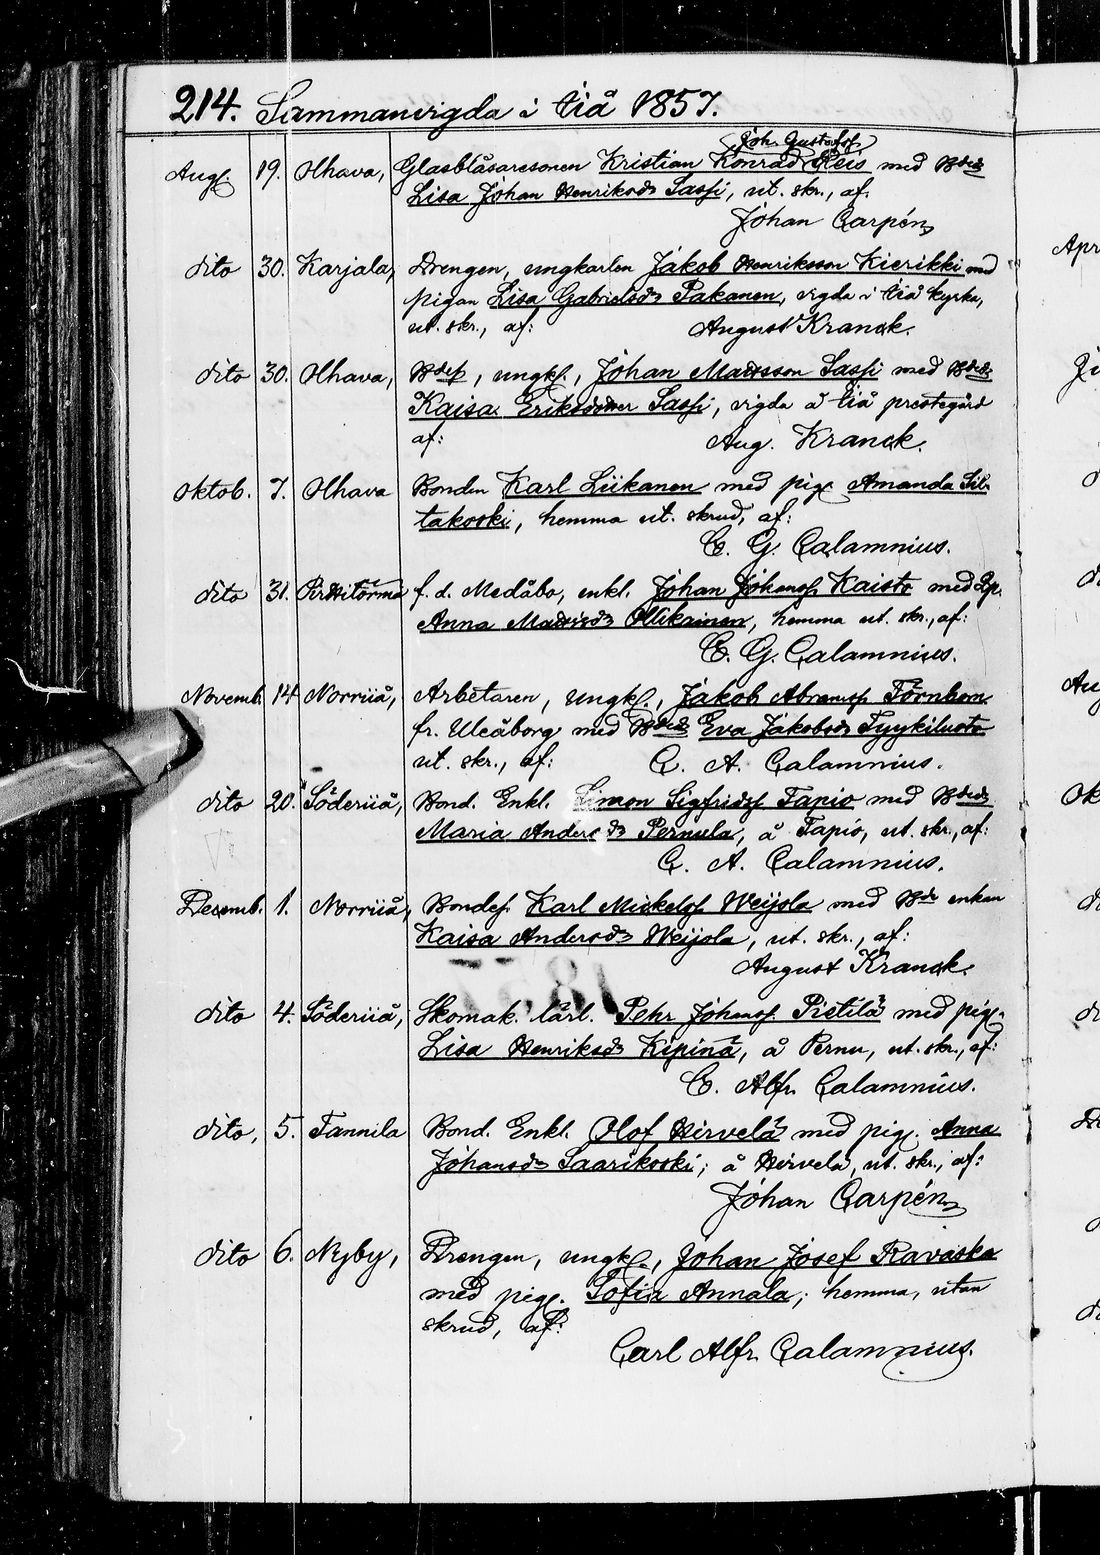 214. Sammanvigda i Iiå 1857.
Joh. Gustafsf
Aug. 19. Olhava, Glasblåsaresonen Kristian Konrad Reis med Bdedr
Lisa Johan Henriksdr Sassi, ut. skr., af.
Johan Carpén
dito 30. Karjala, Drengen, ungkarlen Jakob Henriksson Kierikki med
pigan Lisa Gabrielsdr Pakanen, vigda i Iiå kyrka,
ut. skr., af: August Kranck.
dito 30. Olhava, Bdes, ungk., Johan Matsson Sassi med Bdedr
Kaisa Eriksdotter Sassi, vigda å Iiå prestegård
af: Aug. Kranck.
Oktob. 7. Olhava Bonden Karl Liikanen med pig. Amanda Sil-
takoski, hemma ut. skrud, af:
C. G. Calamnius.
dito 31. Pirttitörmä f. d. Medåbo, enkl. Johan Johansf. Kaisto med
Anna Mattsdr Ollikainen, hemma ut. skr., af:
C. G. Calamnius.
Novemb. 14 Norriiå, Arbetaren, ungk., Jakob Abramsf. Törnbom
fr. Uleåborg med Bdedr Eva Jakobsdr Tyykiluoto
ut. skr., af: C. A. Calamnius.
dito 20. Söderiiå, Bond. Enkl. Simon Sigfridsf Tapio med Bdedr
Maria Andersdr Pernula, å Tapio, ut. skr., af:
C. A. Calamnius.
Decemb. 1. Norriiå, Bondes. Karl Mickelsf. Weijola med Bde enkan
Kaisa Andersdr Weijola, ut. skr., af:
August Kranck.
dito 4. Söderiiå, Skomak. lärl. Pehr Johansf. Pietilä med pig.
Lisa Henriksdr Kipinä, å Pernu, ut. skr., af:
C. Alfr. Calamnius.
dito, 5. Tannila Bond. Enkl. Olof Hirvelä med pig. Anna
Johansdr Saarikoski; å Hirvelä, ut. skr., af:
Johan Carpén
dito 6. Nyby, Drengen, ungk., Johan Josef Ravaska
med pig. Sofia Annala; hemma, utan
skrud, af:
Carl Alfr. Calamnius.